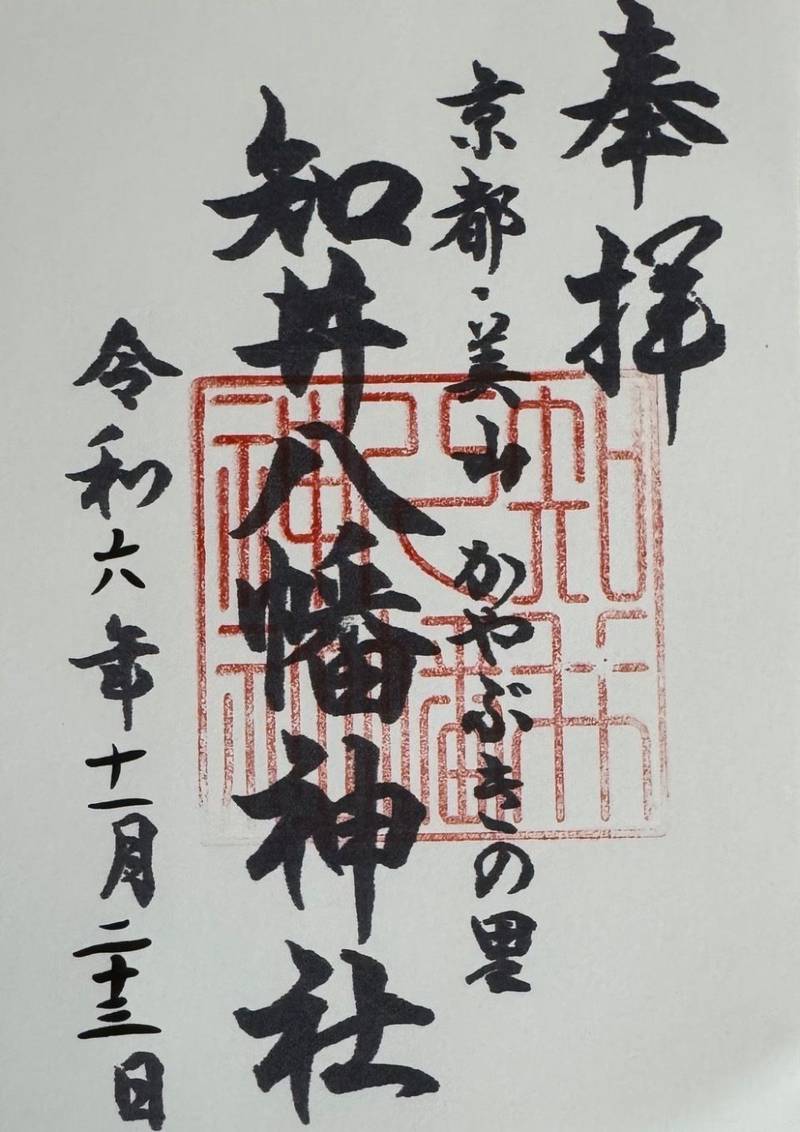 奉拝
京都・美山 かやぶきの里
知井八幡神社
令和六年十一月二十三日